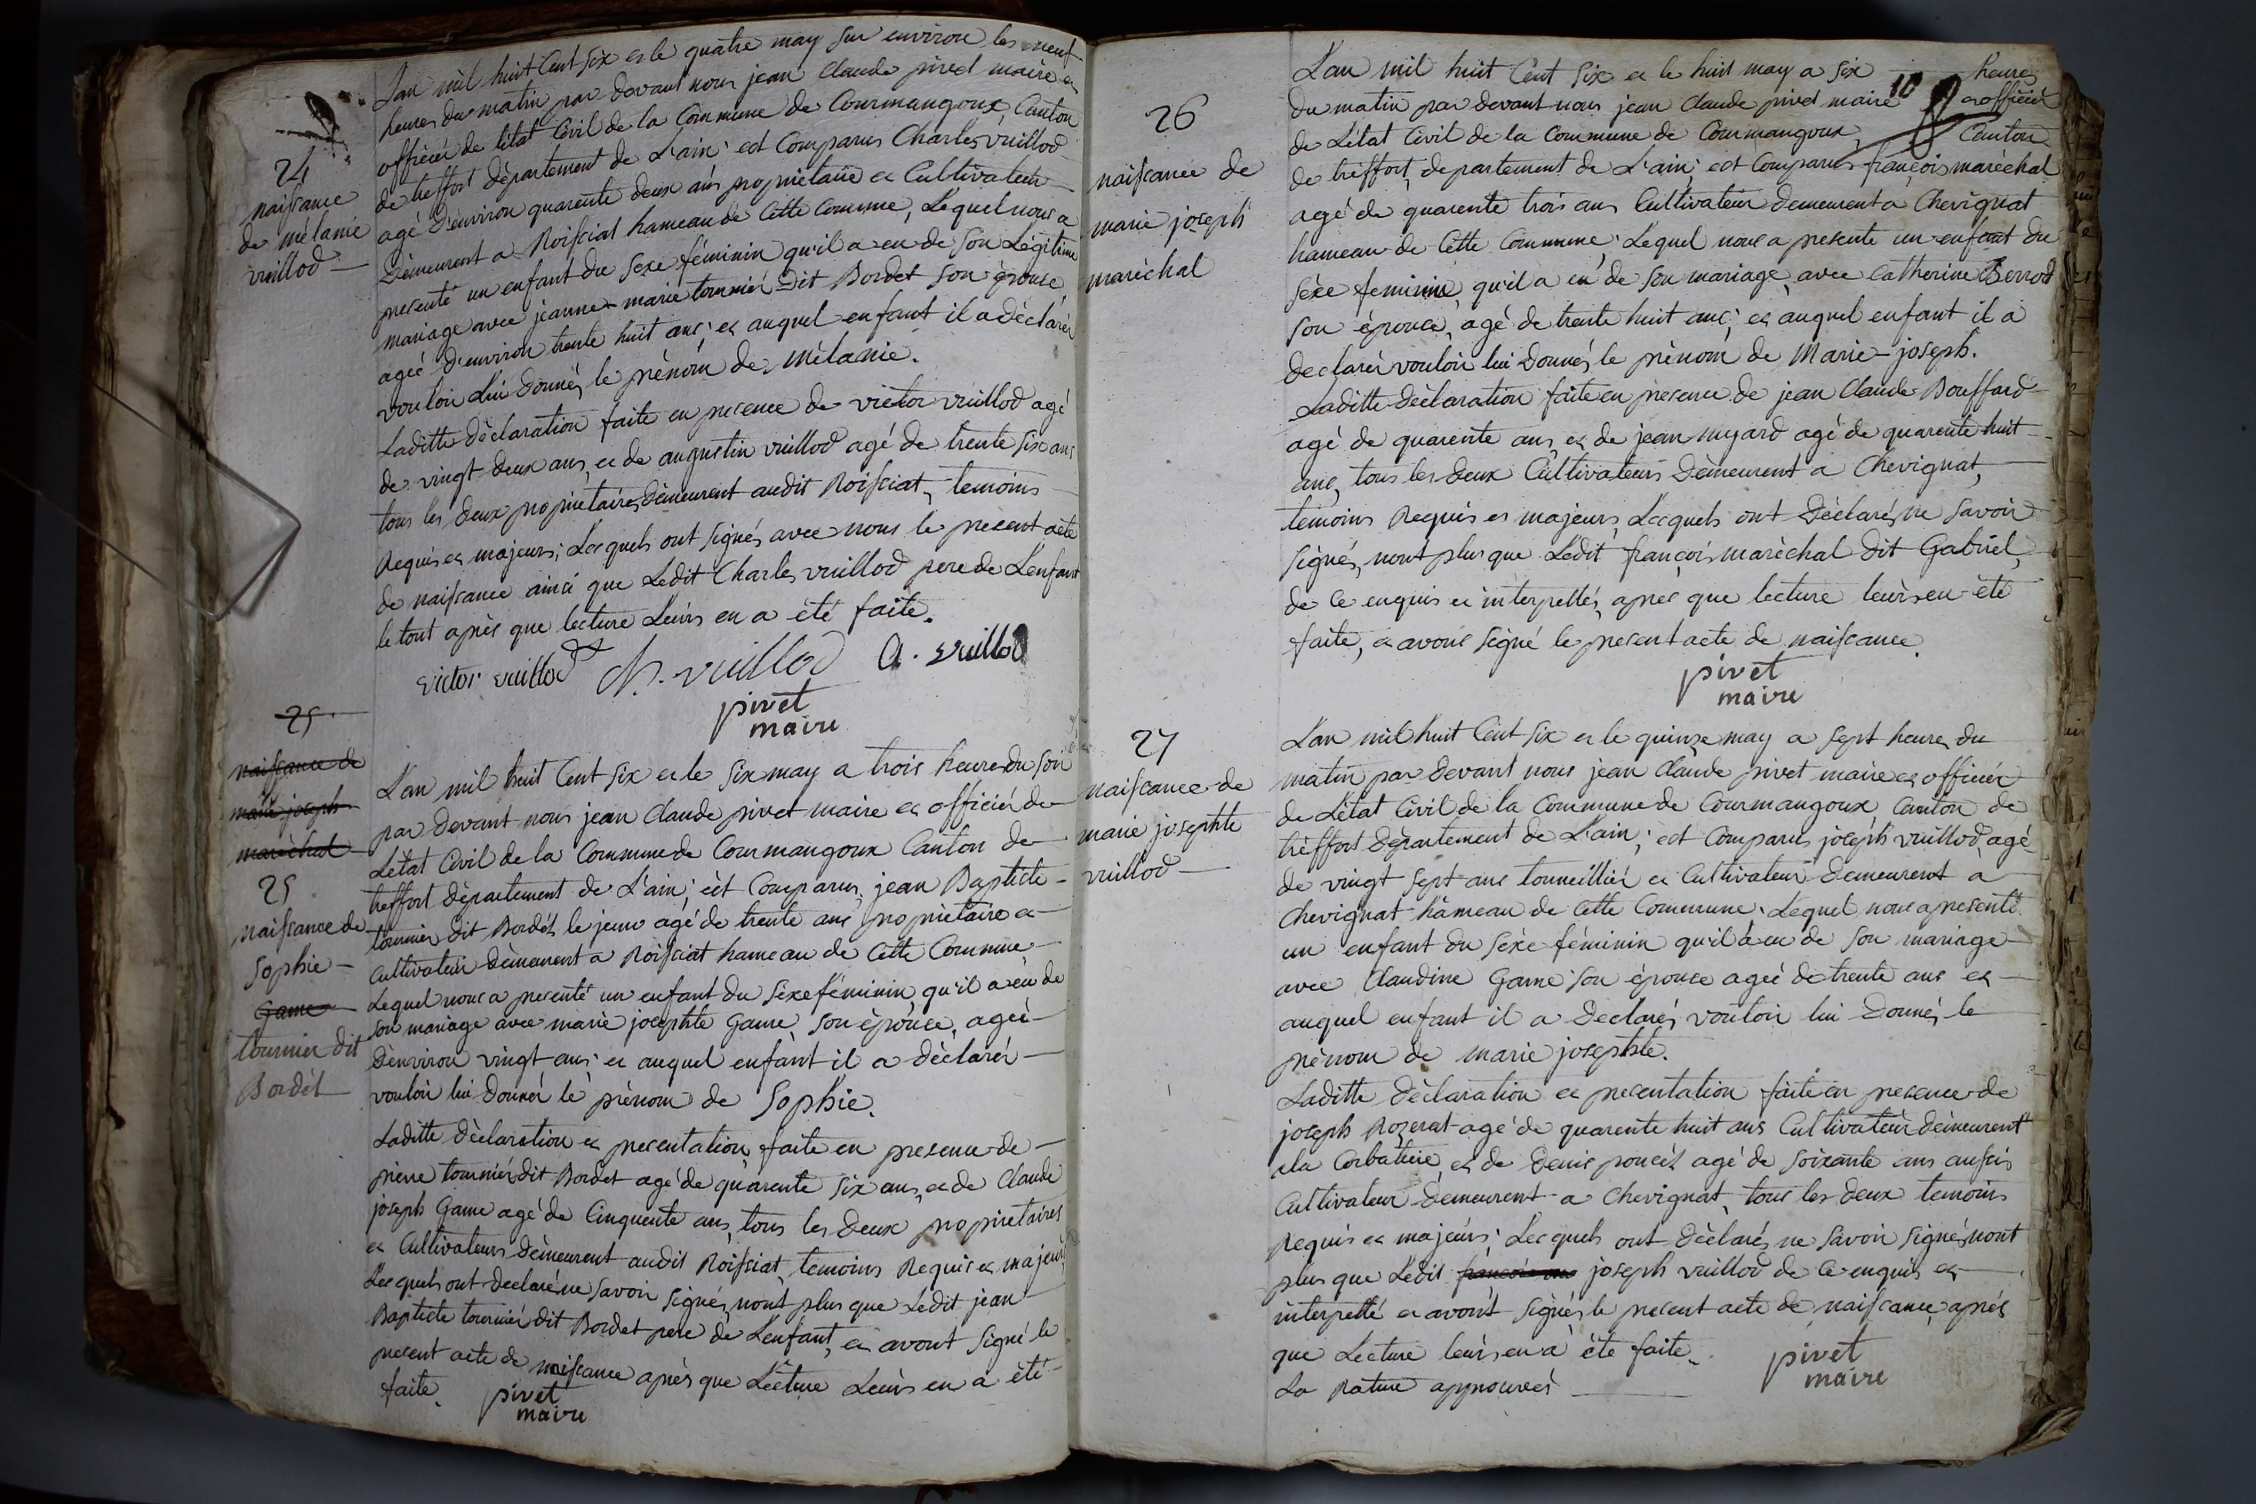 24
naissance
de mélanie
vuillod
L'an mil huit Cent six et le quatre may sur environ les neuf
heures du matin par devant nous jean Claude pivet maire et
officiér de l'état Civil de la Commune de Courmangoux, Canton
de treffort département de L'ain; est Comparus Charles vuillod
agé d'environ quarente deux ans propriétaire et Cultivateur
Démeurent a Roissiat hameau de Cette Comune, Lequel nous a
presenté un enfant du sexe féminin qu'il a eu de son Légitime
mariage avec jeanne-marie tournier Dit Bordet son épouse
ageé d'environ trente huit ans; et auquel enfant il a déclarér
vouloir lui Donnér le prénom de Mélanie.
Laditte Déclaration faite en presence de victor vuillod agé
de vingt deux ans, et de augustin vuillod agé de trente six ans
tous les deux propriétaires, Démeurent audit Roissiat, temoins
Requis et majeurs; Lesquels ont signés avec nous le present acte
de naissance ainsi que Ledit Charles vuillod pere de L'enfant
le tout après que lecture Leurs en a été faite.
victor vuillod Ch. vuillod A. vuillod
pivet
maire
25
naissance de
marie joseph
maréchal
25
naissance de
Sophie
Game
tournier dit
Bordét
L'an mil huit Cent six et le six may a trois heure du soir
par devant nous jean Claude pivet maire et officiér de
L'état Civil de la Commune de Courmangoux Canton de
treffort département de L'ain; ést Comparus jean Baptiste
tournier dit Bordét le jeune agé de trente ans propriétaire et
Cultivateur Démeurent a Roissiat hameau de Cette Commune
Lequel nous a presenté un enfant du séxe féminin, qu'il a eu de
son mariage avec marie josephte Game, son épouse, ageé
D'environ vingt ans; et auquel enfant il a déclarér
vouloir lui Donnér le prénom de Sophie.
Laditte déclaration et presentation, faite en presence de
pierre tourniér dit Bordet agé de quarente six ans, et de Claude
joseph Game agé de Cinquente ans, tous les deux propriétaires
et Cultivateurs Démeurent audit Roissiat, temoins Requis et majeurs
Lesquels ont declaré ne savoir signér, nont plus que Ledit jean
Baptiste tourniér dit Bordet pere de L'enfant, et avont signé le
present acte de naissance aprés que Lecture Leurs en a été
faite.
pivet
maire
10
26
naissance de
marie joseph
maréchal
L'an mil huit Cent six et le huit may a six heures
du matin par devant nous jean Claude pivet maire et officiér
de L'état Civil de la Commune de Courmangoux, Canton
de tréffort, departement de L'ain; est Comparus françois marechal
agé de quarente trois ans Cultivateur demeurent a Chevignat
hameau de Cette Commune; Lequel nous a presenté un enfant du
séxe feminin, qu'il a eu de son mariage, avec Catherine Berrod
son épouse, agé de trente huit ans; et auquel enfant il a
declarér vouloir lui Donnér le prénom de Marie-joseph.
Laditte déclaration faite en présence de jean Claude Bouffard
agé de quarente ans, et de jean nyard agé de quarente huit
ans, tous les deux Cultivateurs Démeurent a Chevignat,
temoins Requis et majeurs, Lesquels ont Déclarés, ne savoir
signés, nont plus que Ledit françois maréchal dit Gabriel,
de Ce enquis et interpellés, apres que lecture leurs en été
faite, et avons signé le present acte de naissance.
pivet
maire
27
naissance de
marie josephte
vuillod
L'an mil huit Cent six et le quinze may a sept heures du
matin par devant nous jean Claude pivet maire et officiér
de L'état Civil de la Commune de Courmangoux Canton de
tréffort Département de L'ain; est Comparus joseph vuillod, agé
de vingt sept ans tonneilliér et Cultivateur Demeurent a
Chevignat hameau de Cette Commune, Lequel nous a presenté
un enfant du séxe féminin qu'il a eu de son mariage
avec Claudine Game son épouse ageé de trente ans et
auquel enfant il a Déclarés vouloir lui Donnér le
prénom de marie josephte.
Laditte Déclaration et presentation faite en presence de
joseph Rozerat agé de quarente huit ans Cultivateur démeurent
a la Corbatière, et de Denis poncét agé de soixante ans aussis
Cultivateur Demeurent a Chevignat, tous les deux temoins
requis et majeurs; Lesquels ont déclarés, ne savoir signés, nont
plus que Ledit françois joseph vuillod de Ce enquis et
interpellé et avons signés le present acte de naissance, aprés
que Lecture leurs en a été faite.
La Rature approuveé
pivet
maire